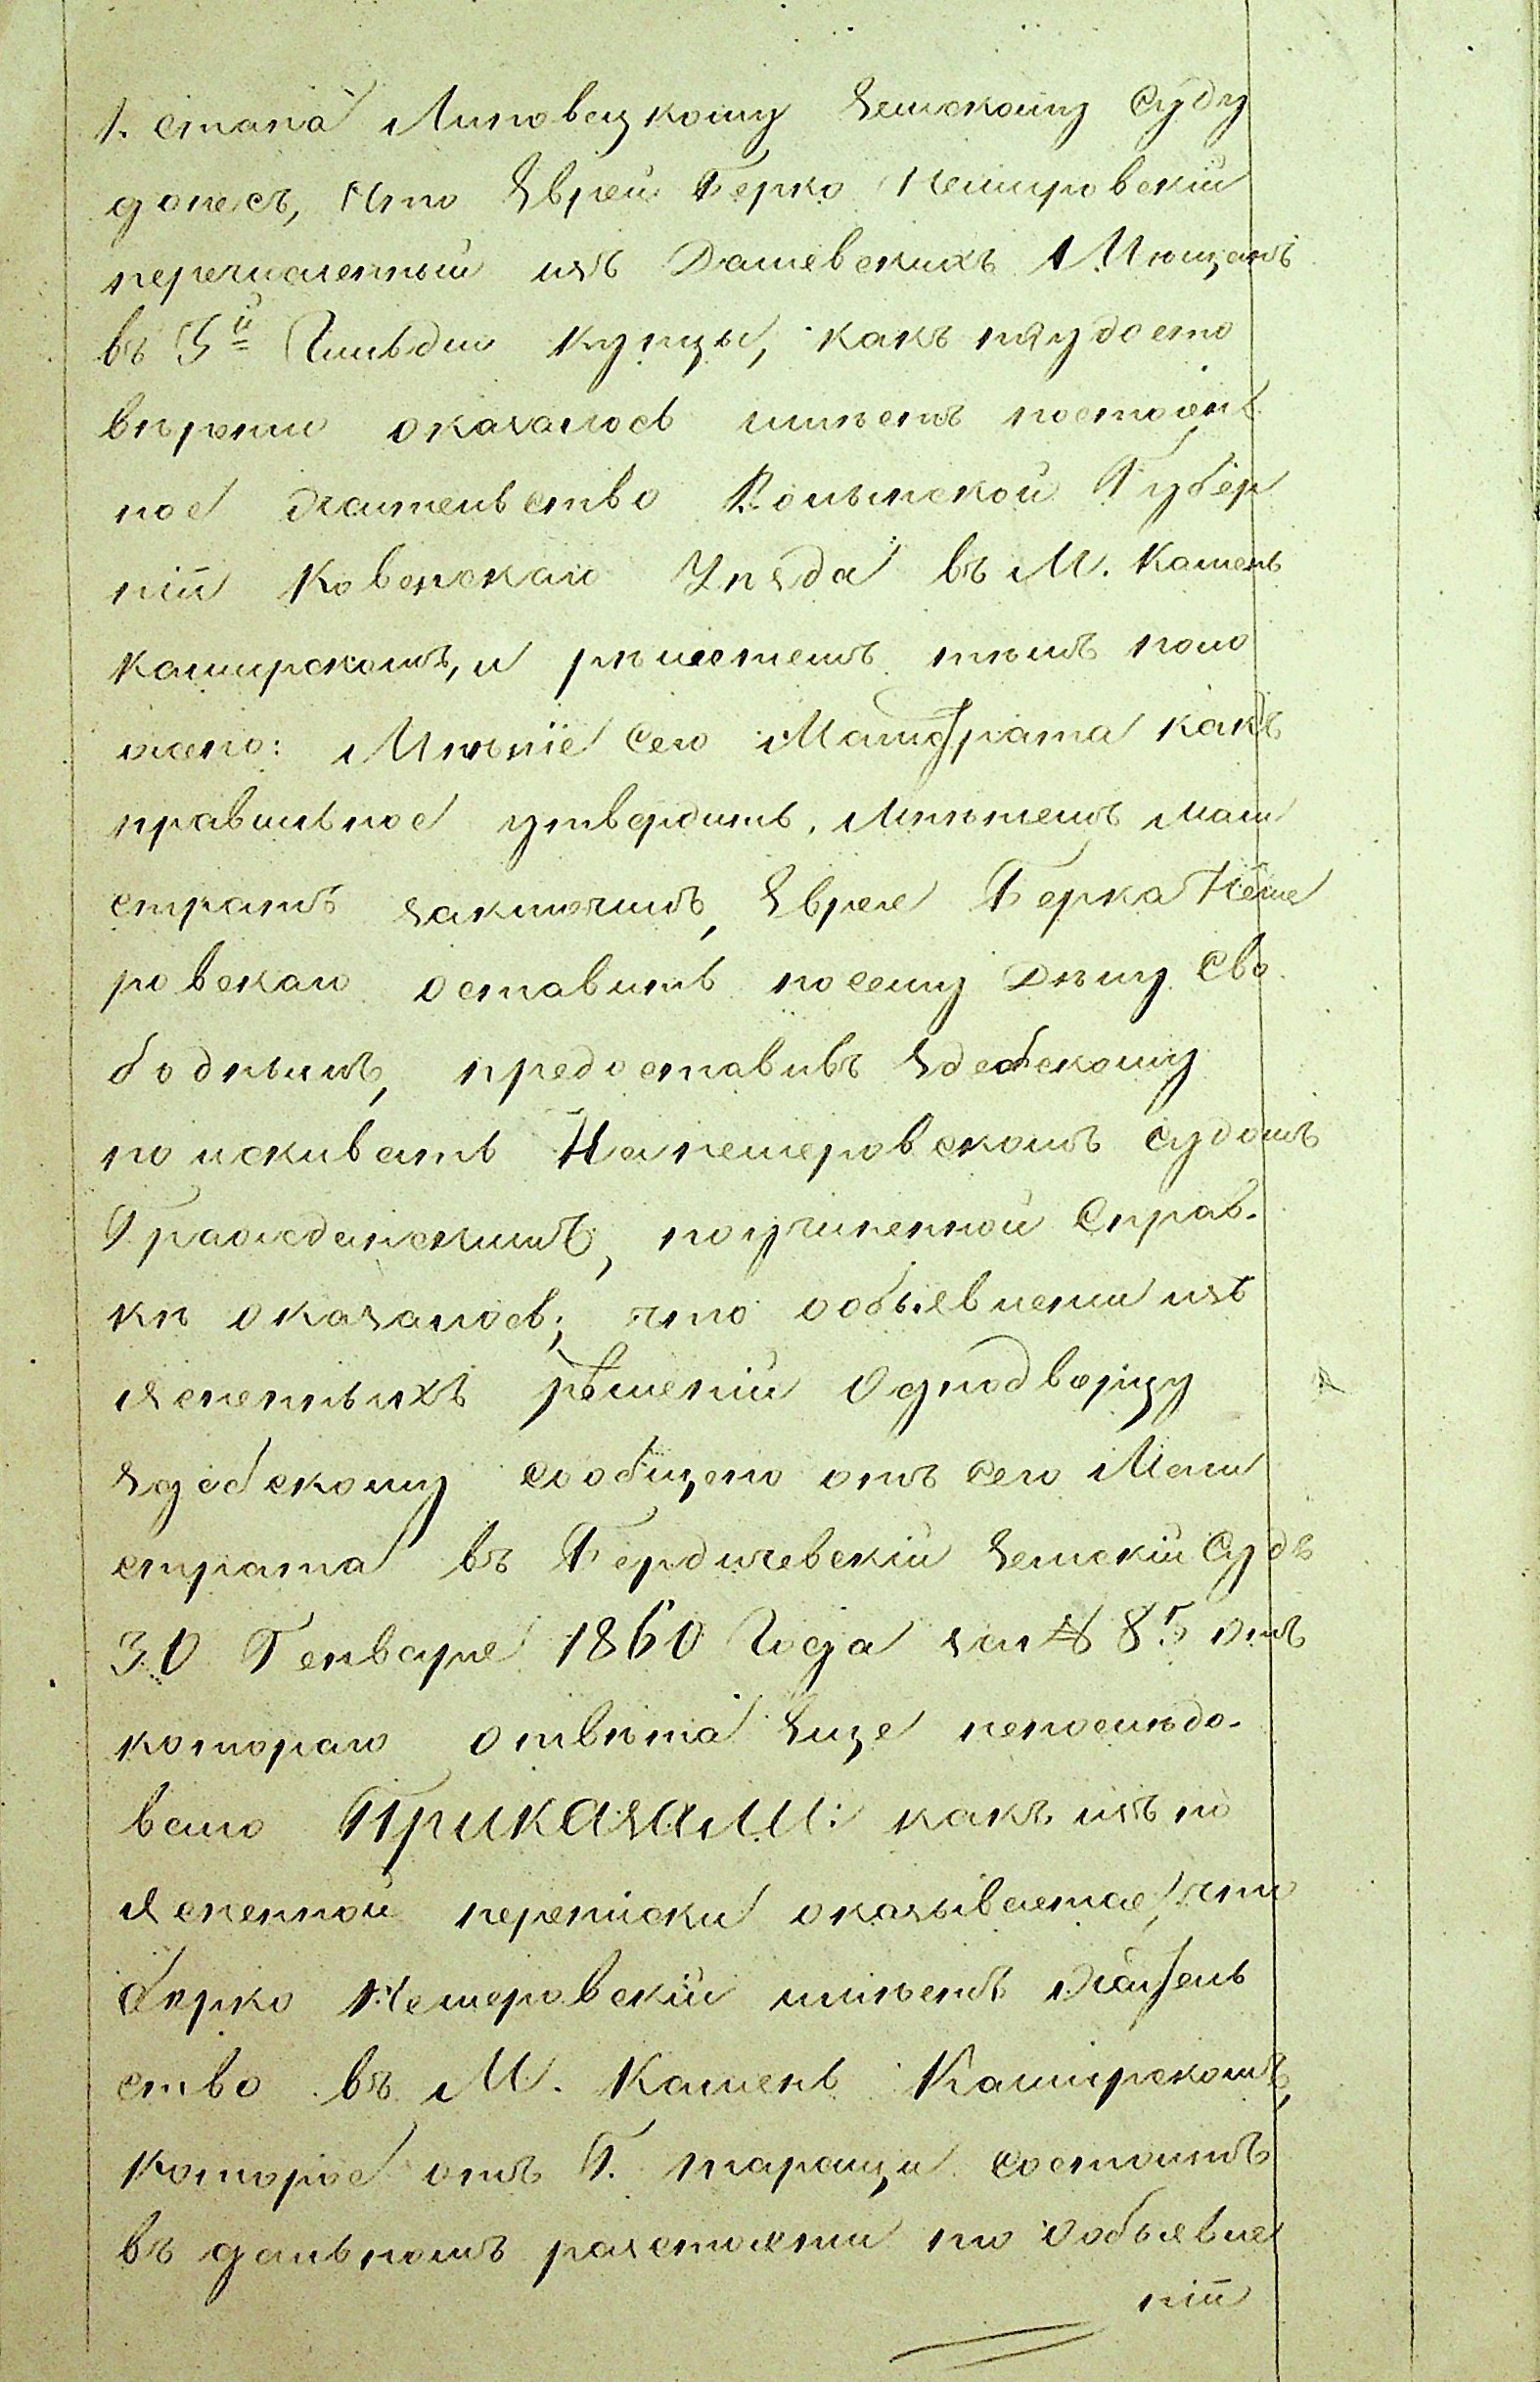 1. стана Липовецкому Земскому Суду
донесъ, что Еврей Берко Немировскій
перечисленный изъ Дашевскихъ Мющанъ
въ 3й Гильдіи купцы, какъ поудосто
вѣрению оказалось имѣетъ постоян
ное жительство Волынской Губер
ніи Ковенскаго Уѣзда въ М. Камень
Каширскомъ, и рѣшениемъ тѣмъ поло
жено: Мнѣніе сего Магистрата какъ
правильное утвердить, Мнѣниемъ маги
стратъ заключилъ, Еврея Берка Неме
ровскаго оставить посему дѣлу сво
боднымъ, предоставивъ Здебскому
поискивать На немеровскомъ судомъ
Гражданскимъ, поучиненной Справ-
кѣ оказалось; что обобъявлении изъ
ясненныхъ рѣшеній Однодворцу
Здебскому сообщено отъ сего Маги
страта въ Бердичевскій Земскій Судъ
30 Генваря 1860 Года за № 85 отъ
котораго отвѣта Еще непослѣдо-
вало Приказали: какъ изъ по
ясненной переписки оказывается, что
Берко Немеровскій имѣетъ житель
ство въ М. Камень Каширскомъ,
которое отъ Г. таращи состоитъ
въ дальномъ разстояніи то обобъявле
ніи